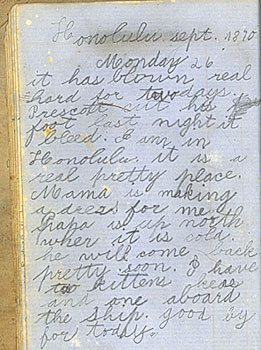 Honolulu. sept. 1870
Monday 26
it has blown real
hard for two days.
Prescott cut his
foot last night it
bleed. I am in
Honolulu. it is a
real pretty place.
Mama is making
a dress for me
Papa is up north
wher it is cold.
he will come back
pretty soon. I have
too kittens heas
and one aboard
the ship. good by
for today.